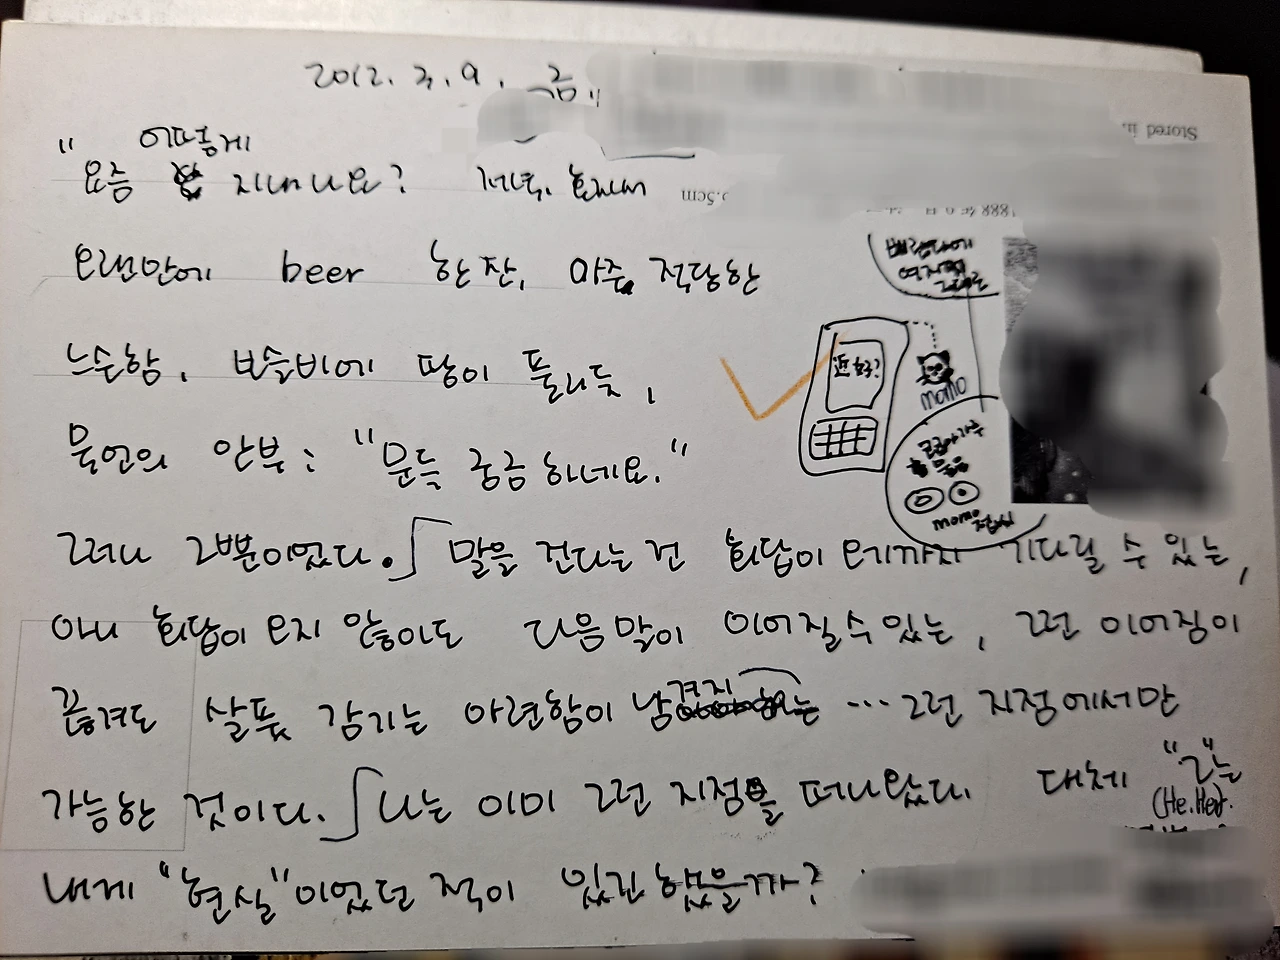 2012. 3. 9. 금.,
Stored in.
어떻게
" 요즘 지내나요? 저녁, 혼자서
5.5cm
오랜만에 beer 한 잔, 아주 적당한
느슨함, 보슬비에 땅이 풀리듯,
近好?
momo
묵언의 안부: "문득 궁금하네요."
momo
그러나 그뿐이었다. 말을 건다는 건 회답이 오기까지 기다릴 수 있는,
아니 회답이 오지 않아도 다음 말이 이어질 수 있는, 그런 이어짐이
끊겨도 살풋 감기는 아련함이 남겨지는 ... 그런 지점에서만
가능한 것이다. 나는 이미 그런 지점을 떠나왔다. 대체 "그"는
(He. Her.
내게 "현실"이었던 적이 있긴 했을까?